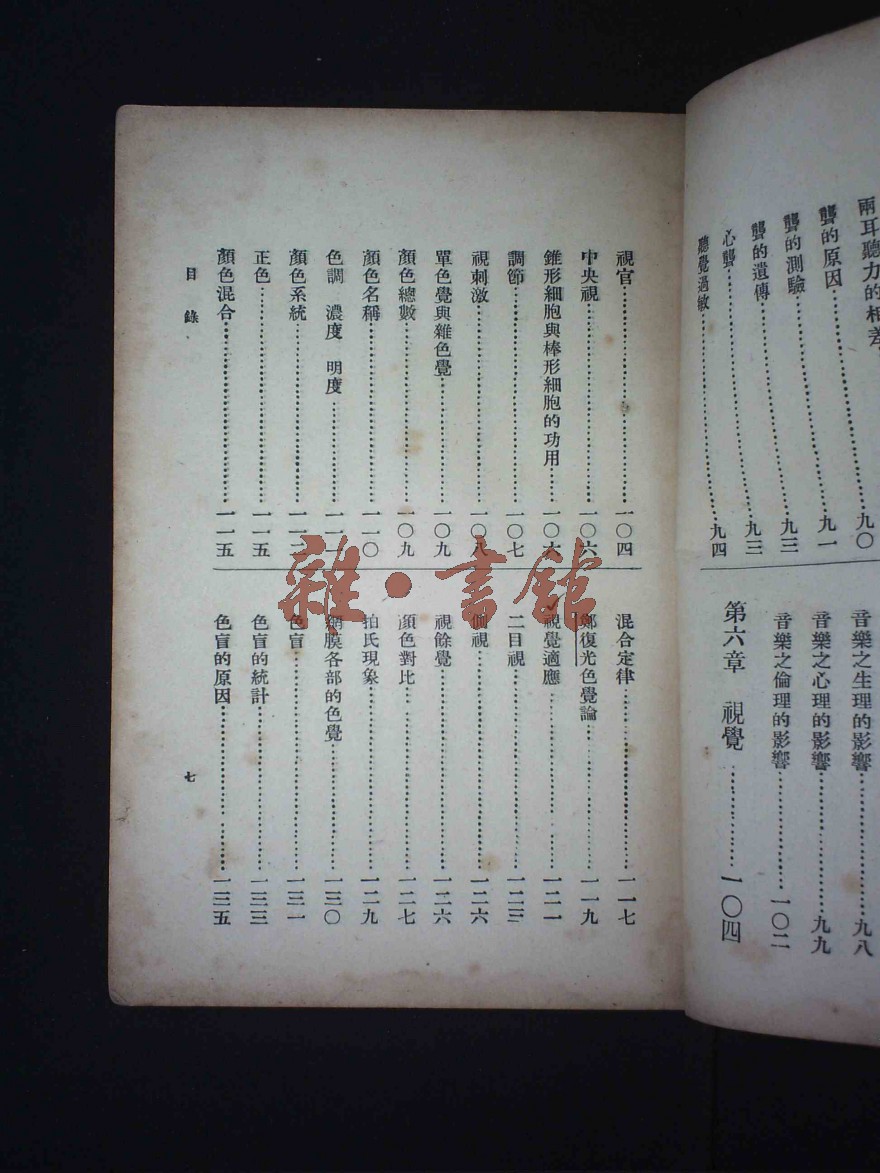 兩耳聽力的相差………九〇
聾的原因………九一
聾的測驗………九三
聾的遺傳………九三
心聾
聽覺過敏………九四
音樂之生理的影響………九八
音樂之心理的影響………九九
音樂之倫理的影響………一〇二
第六章 視覺………一〇四
視官………一〇四
中央視………一〇六
錐形細胞與棒形細胞的功用………一〇六
調節………一〇七
視刺激………一〇八
單色覺與雜色覺………一〇九
顏色總數………一〇九
顏色名稱………一一〇
色調 濃度 明度………一一一
顏色系統………一一二
正色………一一五
顏色混合………一一五
混合定律………一一七
鄭復光色覺論………一一九
視覺適應………一二一
二目視………一二三
側視………一二六
視餘覺………一二六
顏色對比………一二七
拍氏現象………一二九
網膜各部的色覺………一三〇
色盲………一三一
色盲的統計………一三三
色盲的原因………一三五
目錄
七
雜·書館